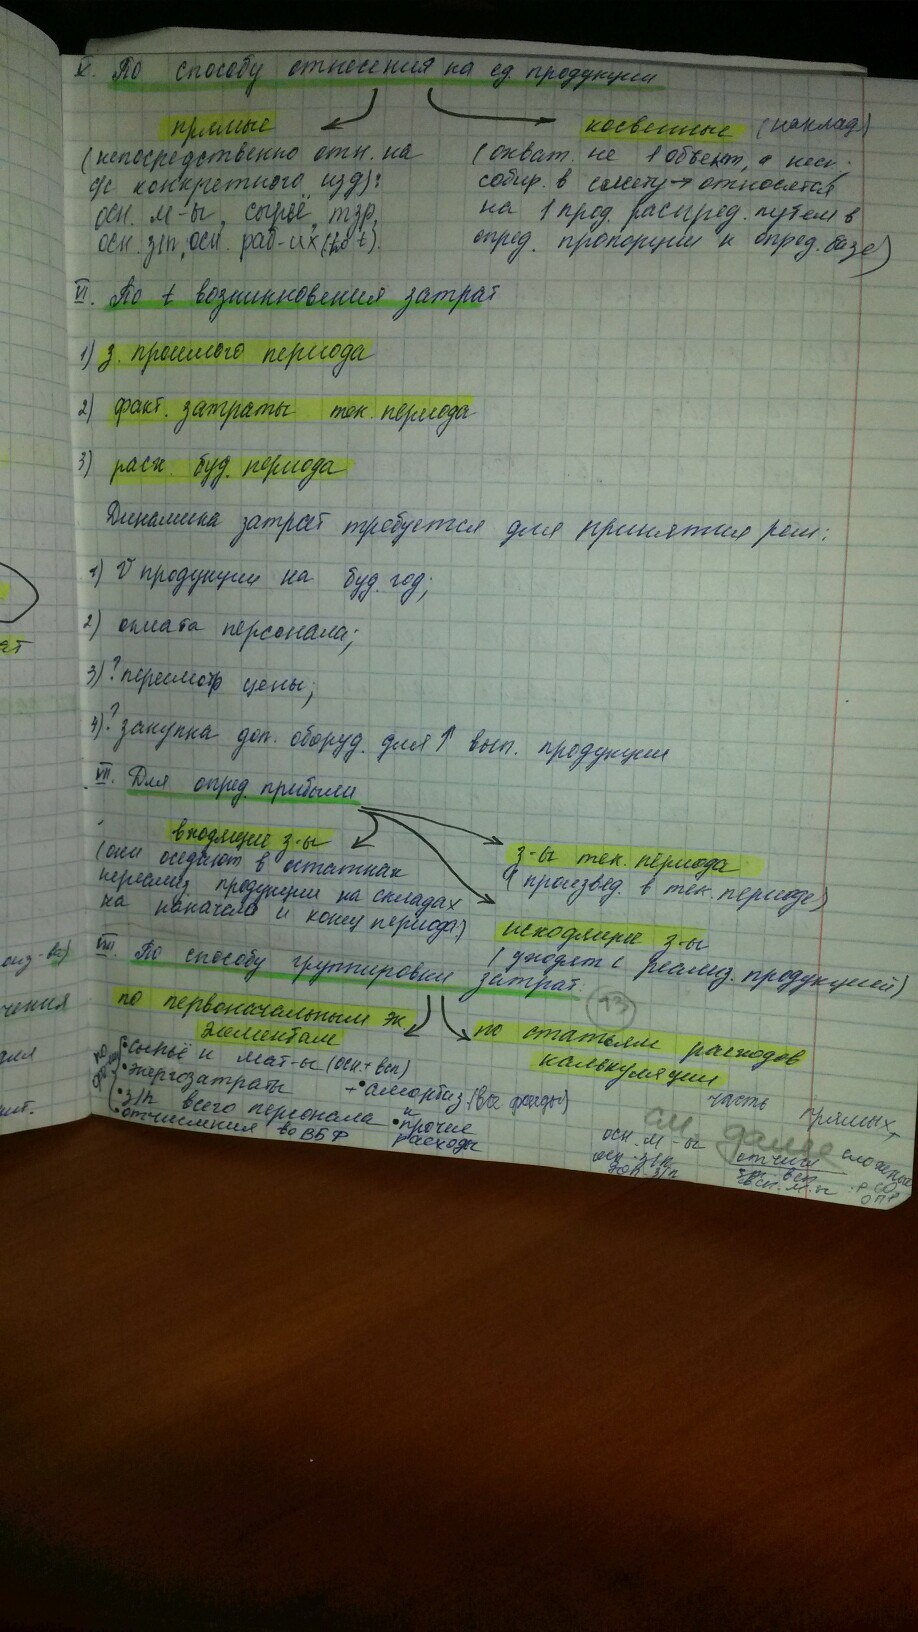 V. По способу отнесения на ед. продукции
прямые
(непосредственно отн. на
с/с конкретного изд):
осн. м-ы, сырьё, тзр,
осн. з/п, осн. раб-их
косвенные (наклад)
(охват. не 1 объект, а неск.
собир. в смету → относятся
на 1 прод. распред. путем в
опред. пропорции к опред. базе)
VI. По t возникновения затрат
1) з. прошлого периода
2) факт. затраты тек. периода
3) расх. буд. периода
Динамика затрат требуется для принятия реш:
1) V продукции на буд. год;
2) оплата персонала;
3) ? пересмотр цены;
4) ? закупка доп. оборуд. для ↑ вып. продукции
VII. Для опред. прибыли
входящие з-ы
(они оседают в остатках
нереализ. продукции на складах
на начало и конец периода)
з-ы тек. периода
(произвед. в тек. периоде)
исходящие з-ы
(уходят с реализ. продукцией)
VIII. По способу группировки затрат:
13
по первоначальным эк
элементам
• сырьё и мат-ы (осн + всп)
• энергозатраты
• з/п всего персонала
• отчисления во ВБФ
+ • амортиз (все фонды)
и
• прочие
расходы
по статьям расходов
калькуляции
часть прямых,
см. далее
осн. м-ы
осн. з/п
доп. з/п
отчисл
всп. м-ы
сложные